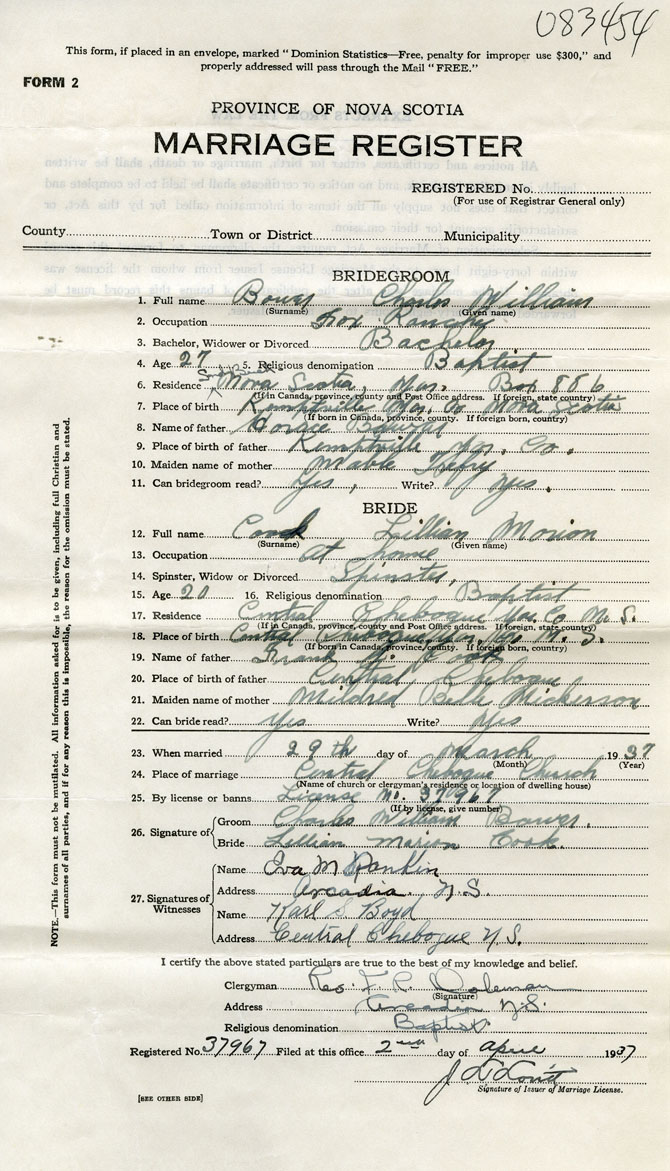 083454
This form, if placed in an envelope, marked "Dominion Statistics—Free, penalty for improper use $300," and
properly addressed will pass through the Mail "FREE."
FORM 2
PROVINCE OF NOVA SCOTIA
MARRIAGE REGISTER
REGISTERED No.
(For use of Registrar General only)
County Town or District Municipality
BRIDEGROOM
1. Full name Bower Charles William
(Surname) (Given name)
2. Occupation Fox Ranching
3. Bachelor, Widower or Divorced Bachelor
4. Age 27 5. Religious denomination Baptist
6. Residence Nova Scotia, Yar. Box 886
(If in Canada, province, county and Post Office address. If foreign, state country)
7. Place of birth Kemptville Yar. Co Nova Scotia
(If born in Canada, province, county. If foreign born, country)
8. Name of father Horace
9. Place of birth of father Kemptville Yar. Co.
10. Maiden name of mother
11. Can bridegroom read? Yes, Write? Yes.
BRIDE
12. Full name Cook Lillian Morion
(Surname) (Given name)
13. Occupation at home
14. Spinster, Widow or Divorced Spinster,
15. Age 20 16. Religious denomination Baptist
17. Residence Central Chebogue Yar. Co. N. S.
(If in Canada, province, county and Post Office address. If foreign, state country)
18. Place of birth Central Chebogue, Yar. Co N. S.
(If born in Canada, province, county. If foreign born, country)
19. Name of father Frank Cook
20. Place of birth of father Central Chebogue
21. Maiden name of mother Mildred Bell Nickerson
22. Can bride read? Yes Write? Yes
23. When married 29th day of March 1937
(Month) (Year)
24. Place of marriage Central Chebogue Church
(Name of church or clergyman's residence or location of dwelling house)
25. By license or banns License no. 37967
(If by license, give number)
26. Signature of Groom Charles William Bower.
Bride Lillian Marion Cook.
27. Signatures of Witnesses Name Eva M Rankin
Address Arcadia. N.S.
Name Karl S Boyd
Address Central Chebogue N.S.
I certify the above stated particulars are true to the best of my knowledge and belief.
Clergyman Rev. F. R. Coleman
(Signature)
Address Arcadia N.S.
Religious denomination Baptist
Registered No. 37967 Filed at this office 2nd day of April 1937
Signature of Issuer of Marriage License.
[SEE OTHER SIDE]
NOTE.—This form must not be mutilated. All information asked for is to be given, including full Christian and
surnames of all parties, and if for any reason this is impossible, the reason for the omission must be stated.